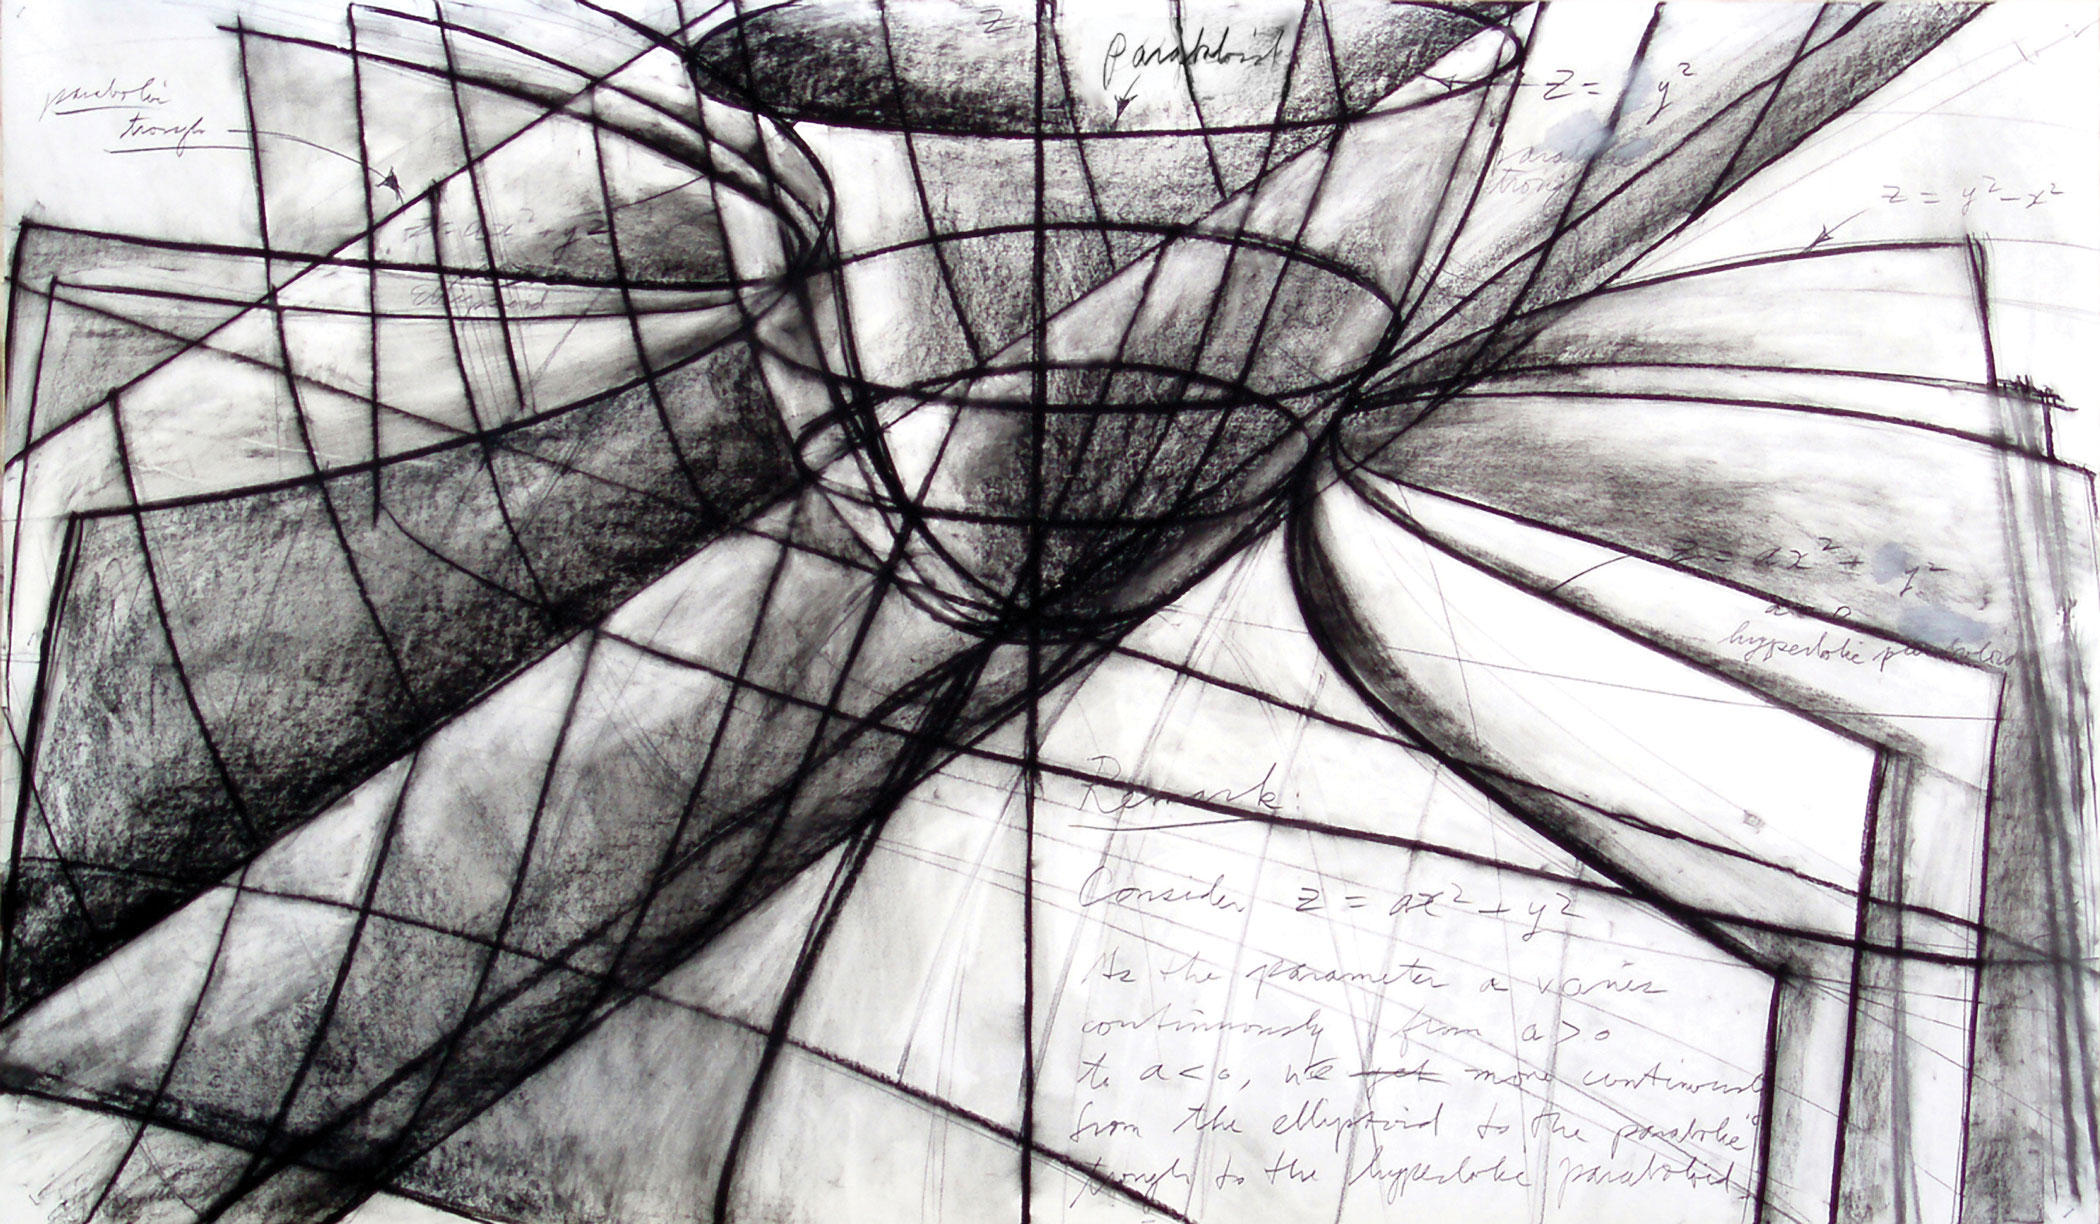 z
paraboloid
z = y²
parabolic
trough
parabolic
trough
z = y² - x²
z = ax² + y²
z = ax² + y²
a < 0
hyperbolic paraboloid
Remark:
Consider z = ax² + y²
As the parameter a varies
continuously from a > 0
to a < 0, we get move continuously
from the elliptoid to the parabolic
trough to the hyperbolic paraboloid.